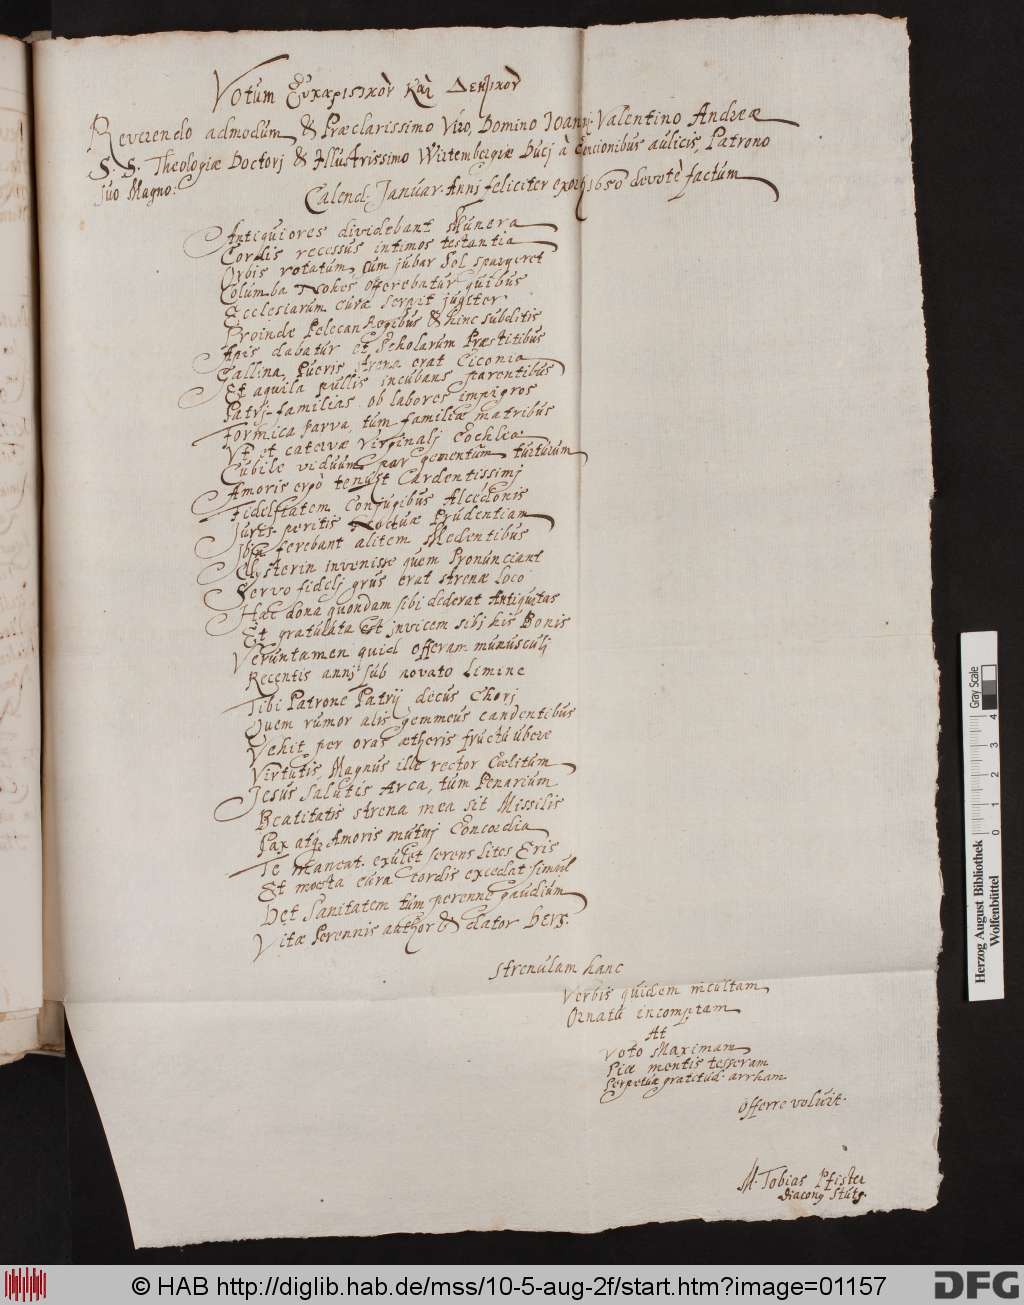 Votum Εὐχαριστικὸν καὶ Δεητικὸν
Reverendo admodum & Præclarissimo Viro, Domino Joannj Valentino Andreæ
S. S. Theologiæ Doctorj & Illustrissimo Wirtembergiæ Ducj à Concionibus aulicis, Patrono
suo Magno:
Calend. Januar. Annj feliciter 1650 devotè factum
Antiquiores dividebant Munera
Cordis recessus intimos testantia
Orbis rotatum cum jubar Sol spargeret
Columba Nohes offerebatur quibus
Ecclesiarum curæ serpit jugiter
Proinde Pelecan Regibus & hinc subditis
Apis dabatur et Scholarum Præstitibus
Gallina, Pueris strena erat Ciconia
Et aquila pullis incubans parentibus
Patrj-familias ob labores impigros
Formica parva, tum familiæ matribus
Ut et catervæ virginalj Cochlea
Cubile viduum par gementum turturum
Amoris ergò tenuit Cardentissimj
Fidelitatem Conjugibus Alcedonis
Juris-peritis Noctuæ Prudentiam
ferebant alitem Medentibus
Clysterin invenisse quem Pronunciant
Servo fidelj grus erat strenæ loco
Hæc dona quondam sibi dederat Antiquitas
Et gratulata est jnvicem sibj his Bonis
Veruntamen quid offeram munusculj
Recentis annj sub novato Limine
Tibi Patrone Patrij decus Chorj
Quem rumor alis gemmeus candentibus
Vehit per oras ætheris fructu ubere
Virtutis, Magnus ille rector Coelitum
Jesus Salutis Arca, tum Penarium
Beatitatis strena mea sit Missilis
Pax atq Amoris mutuj Concordia
Te Maneat, exulet serens Lites Eris
Et moesta cura Cordis excedat simul
Det Sanitatem tum perenne gaudium
Vitæ Perennis author & dator
Strenulam hanc
Verbis quidem incultam
Ornatu incomptam
At
Voto Maximam
Piæ mentis tesseram
Perpetuæ gratitud. arrham
Offerre voluit.
M. Tobias Pfister
Diacony Stutg.
Gray Scale
0 1 2 3 4
Herzog August Bibliothek
Wolfenbüttel
© HAB http://diglib.hab.de/mss/10-5-aug-2f/start.htm?image=01157
DFG